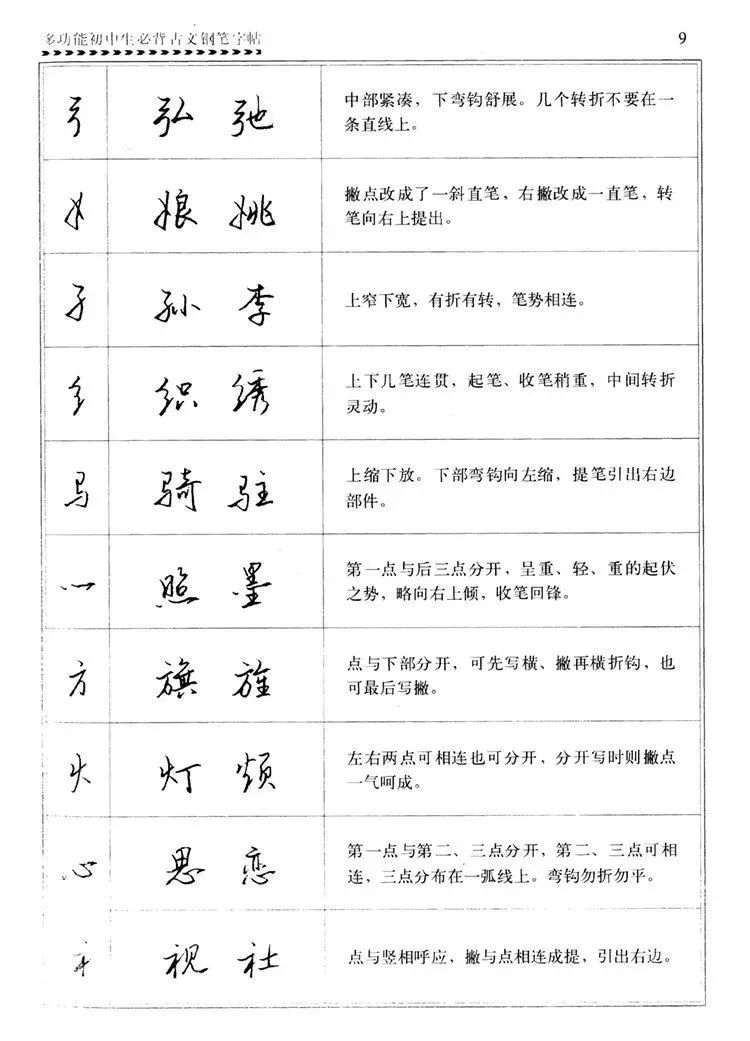 多功能初中生必背古文钢笔字帖 9
弓 弘 弛 中部紧凑，下弯钩舒展。几个转折不要在一
条直线上。
女 娘 姚 撇点改成了一斜直笔，右撇改成一直笔，转
笔向右上提出。
子 孙 李 上窄下宽，有折有转，笔势相连。
纟 织 绣 上下几笔连贯，起笔、收笔稍重，中间转折
灵动。
马 骑 驻 上缩下放。下部弯钩向左缩，提笔引出右边
部件。
灬 照 墨 第一点与后三点分开，呈重、轻、重的起伏
之势，略向右上倾，收笔回锋。
方 旗 旌 点与下部分开，可先写横、撇再横折钩，也
可最后写撇。
火 灯 烦 左右两点可相连也可分开，分开写时则撇点
一气呵成。
心 思 恋 第一点与第二、三点分开，第二、三点可相
连，三点分布在一弧线上。弯钩勿折勿平。
礻 视 社 点与竖相呼应，撇与点相连成提，引出右边。